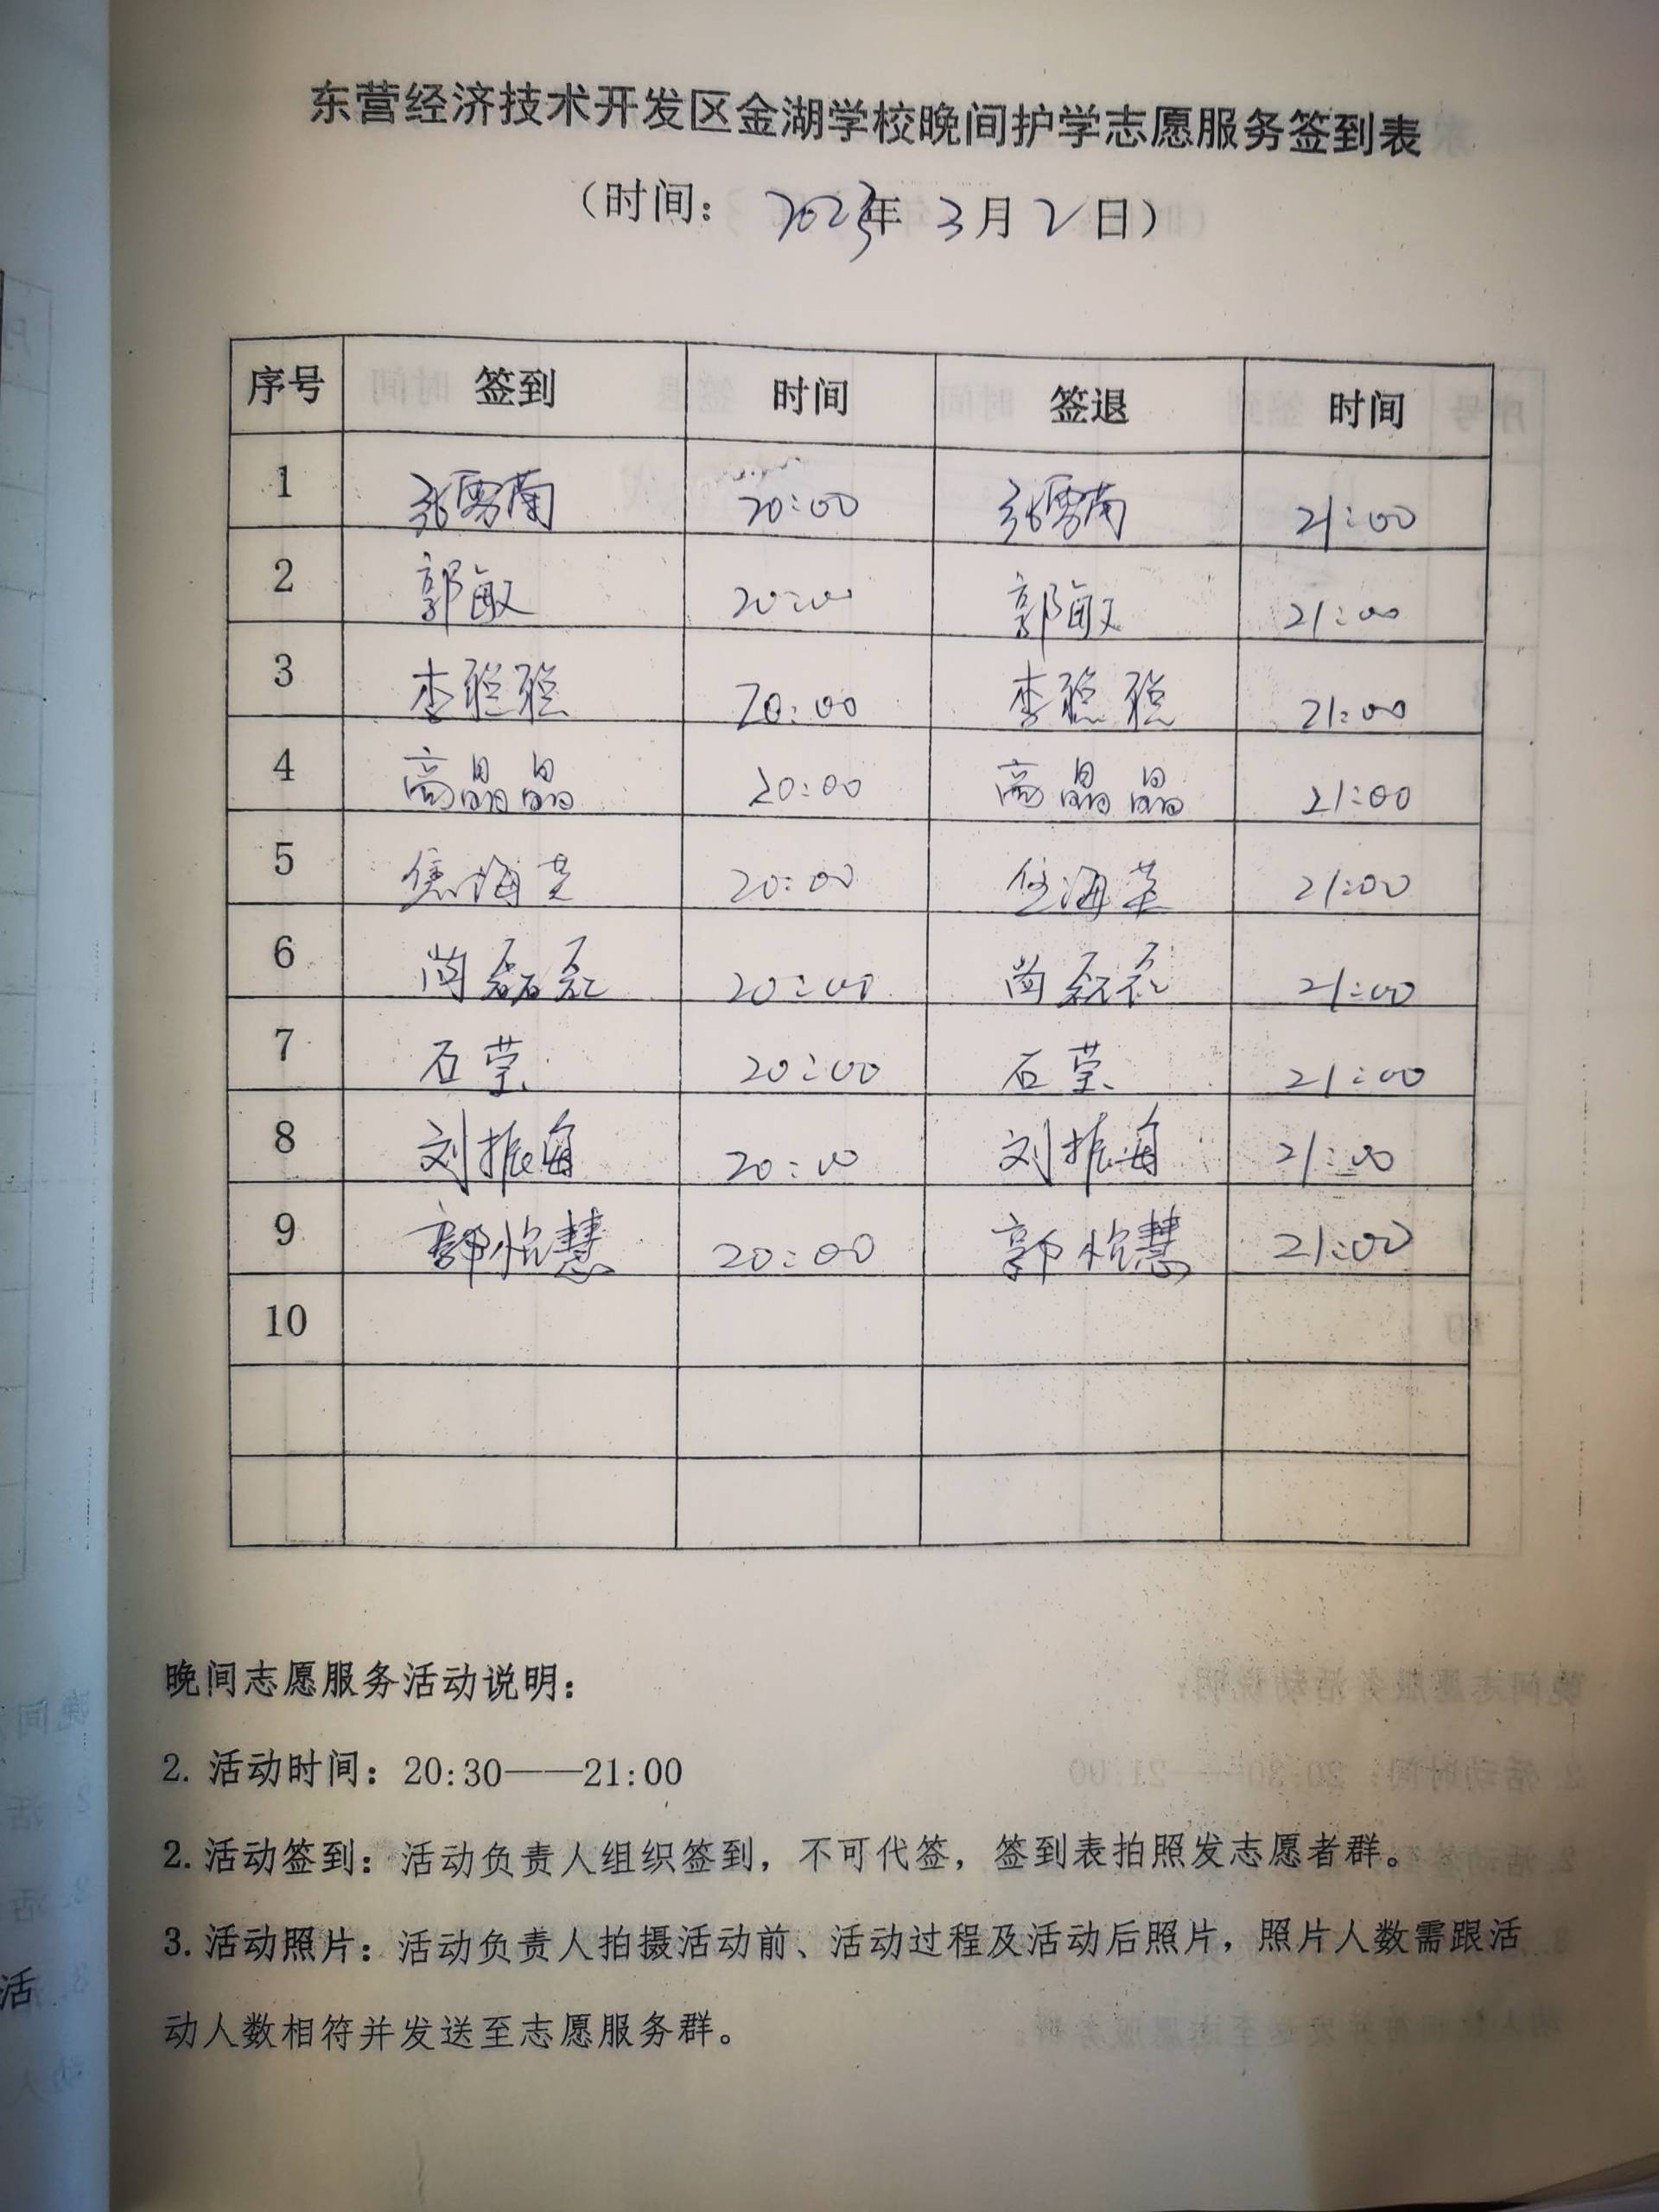 东营经济技术开发区金湖学校晚间护学志愿服务签到表
（时间： 2023年 3月2日）
序号 签到 时间 签退 时间
1 20:00 21:00
2 郭敏 20:00 郭敏 21:00
3 李聪聪 20:00 李聪聪 21:00
4 高晶晶 20:00 高晶晶 21:00
5 20:00 21:00
6 20:00 21:00
7 石莹 20:00 石莹 21:00
8 刘振海 20:00 刘振海 21:00
9 20:00 21:00
10
晚间志愿服务活动说明：
2. 活动时间：20:30——21:00
2. 活动签到：活动负责人组织签到，不可代签，签到表拍照发志愿者群。
3. 活动照片：活动负责人拍摄活动前、活动过程及活动后照片，照片人数需跟活
动人数相符并发送至志愿服务群。